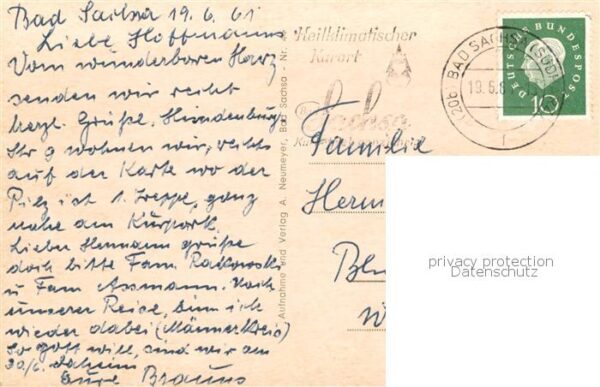 Bad Sachsa 19.6.61
Liebe Hoffmanns
Vom wunderbaren Harz
senden wir recht
herzl. Grüße. Hindenburg
Str 9 wohnen wir, rechts
auf der Karte wo der
Pilz ist 1. Treppe, ganz
nahe am Kurpark.
Lieber Hermann grüße
doch bitte Fam. Rakowski
u Fam Assmann. Nach
unserer Reise, bin ich
wieder dabei (Männerkreis)
So Gott will, sind wir am
30/6. daheim
Eure Brauns
Aufnahme und Verlag A. Neumeyer, Bad Sachsa · Nr.
Heilklimatischer
Kurort
Sachsa
(20b) BAD SACHSA (SÜDH
19.6.6
DEUTSCHE BUNDESPOST
10
Familie
Herm
privacy protection
Datenschutz